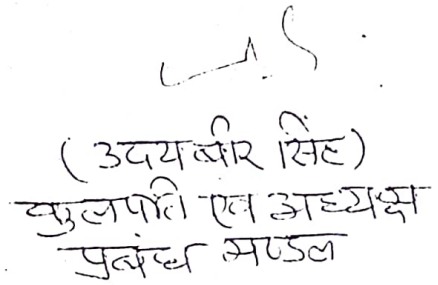 (उदयबीर सिंह)
कुलपति एवं अध्यक्ष
प्रबंध मण्डल